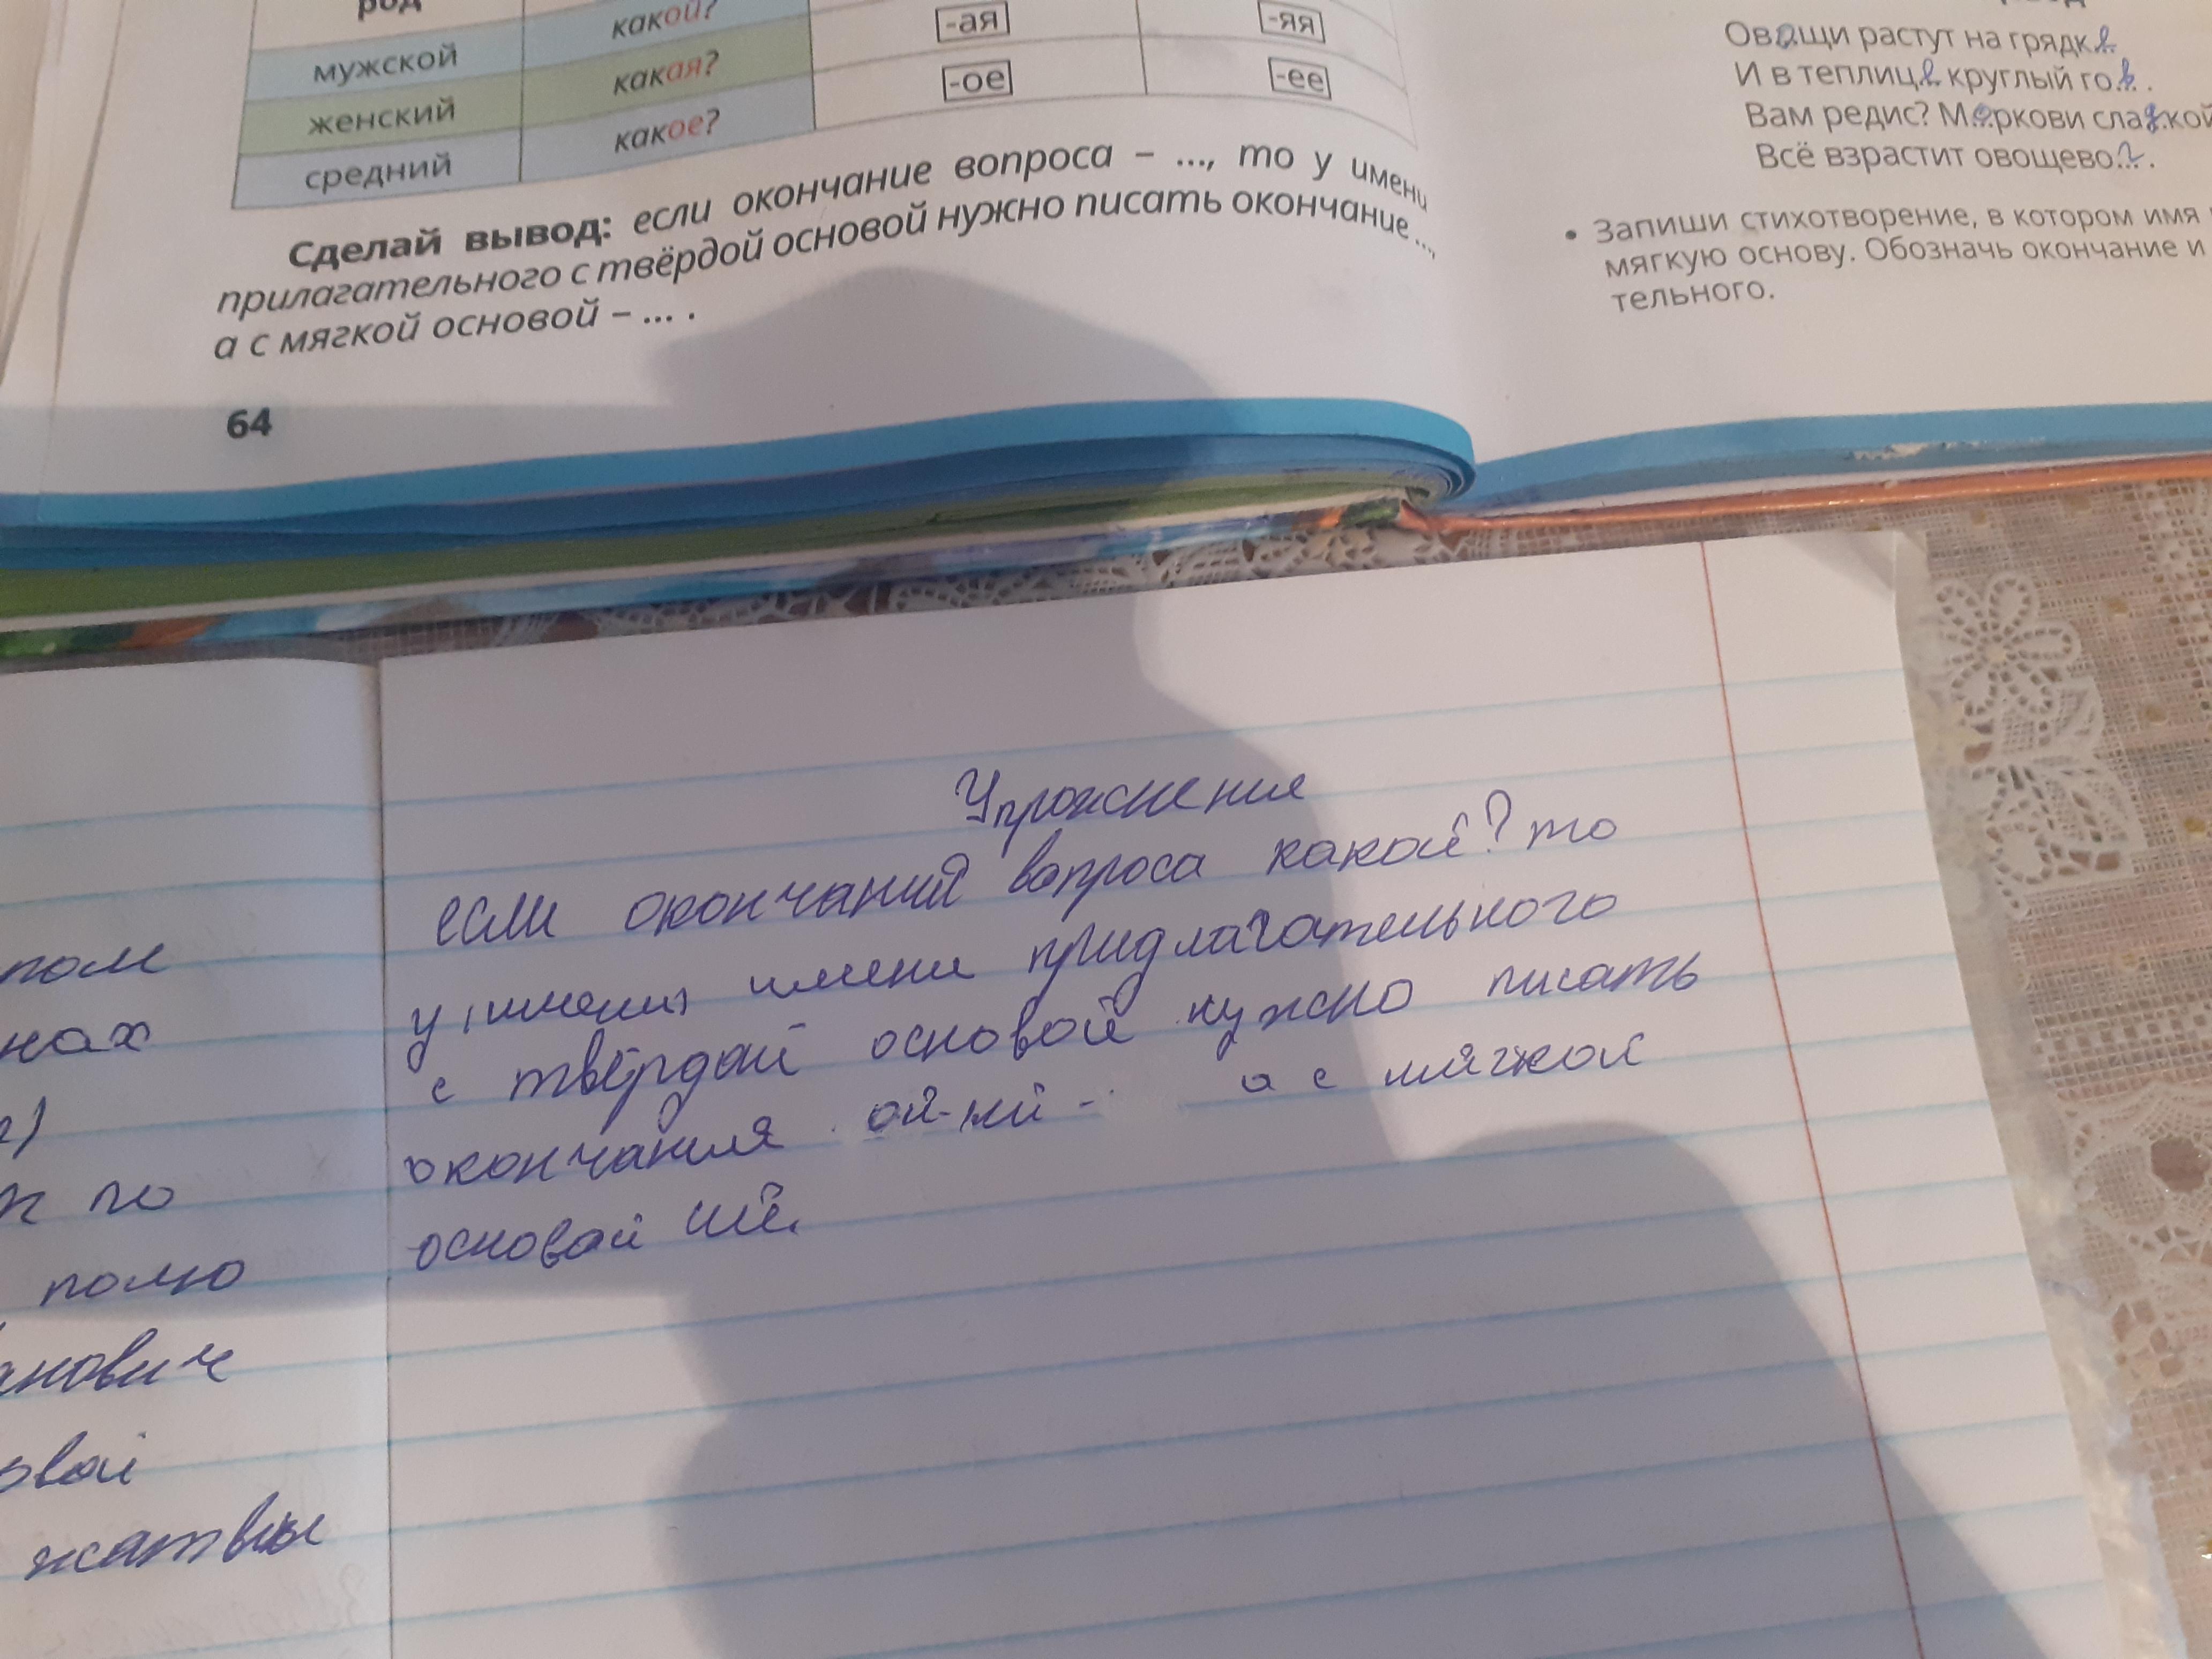 род
мужской
какой?
-ая
-яя
женский
какая?
-ое
-ее
средний
какое?
Сделай вывод: если окончание вопроса – ..., то у имени
прилагательного с твёрдой основой нужно писать окончание ...,
а с мягкой основой – ... .
64
Овощи растут на грядке
И в теплице круглый го
Вам редис? Моркови сладкой
Всё взрастит овощево
• Запиши стихотворение, в котором имя
мягкую основу. Обозначь окончание и
тельного.
если окончаний вопроса какой? то
у имени имени придлагательного
с твёрдой основой нужно писать
окончания ой- а с мягкой
основой ий.
нах
к по
полю
анович
овой
жатвы